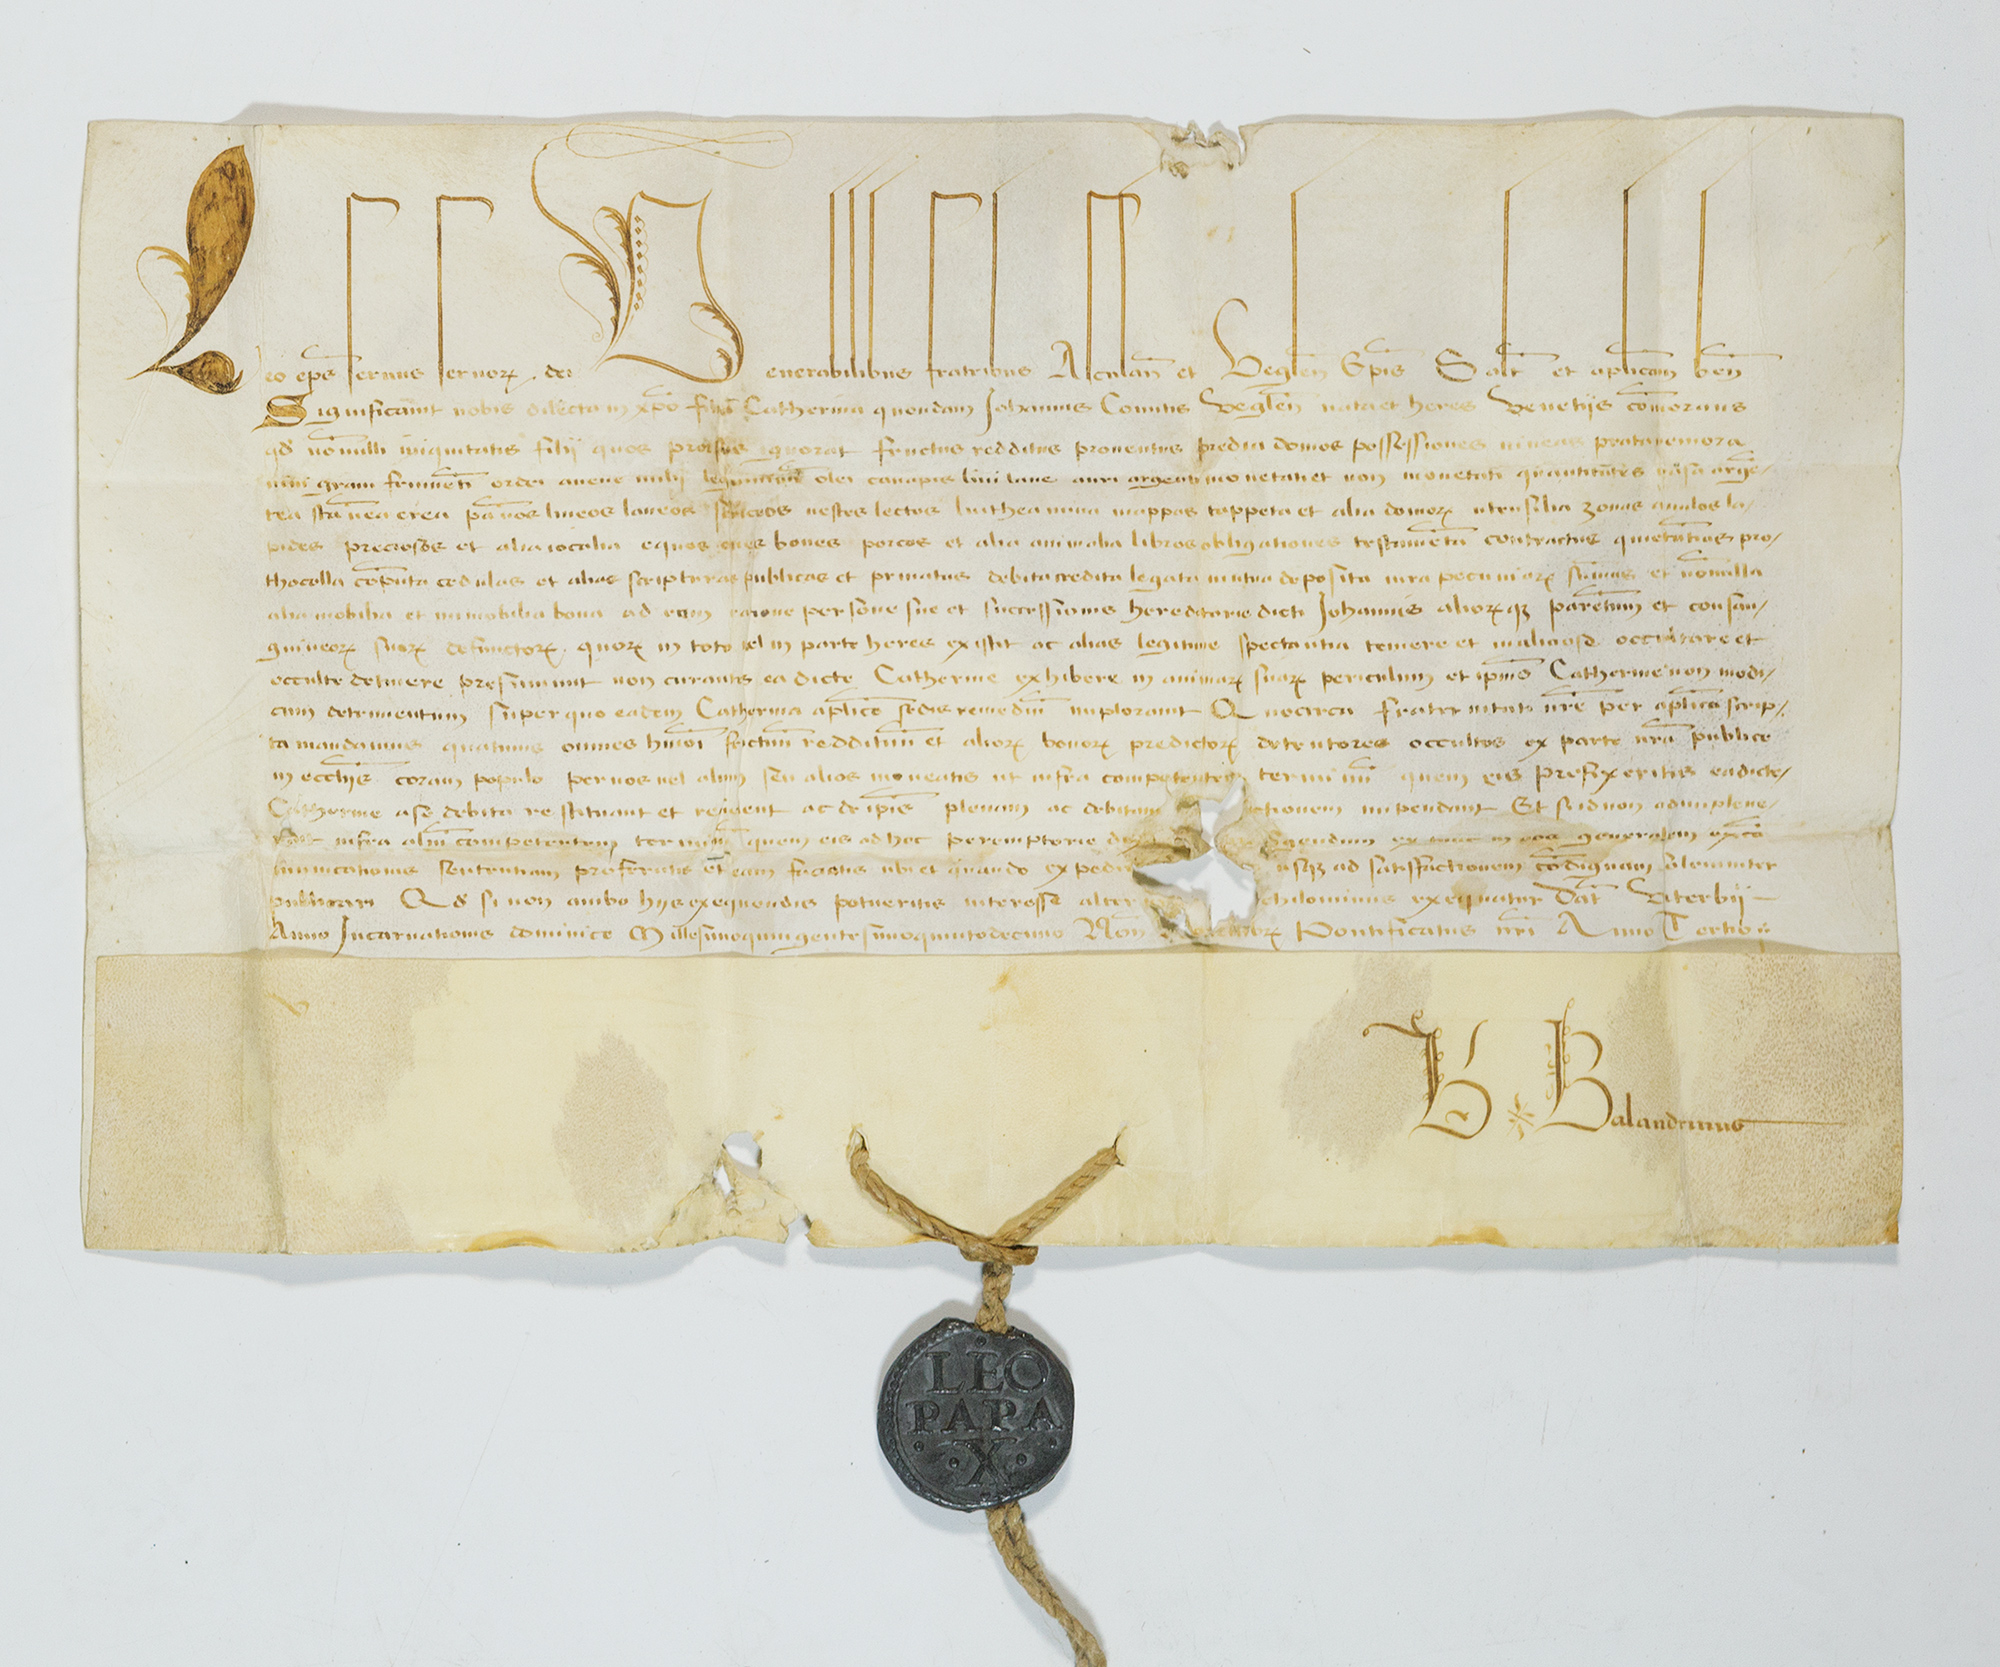 Leo eps servus servorꝝ dei Venerabilibus fratribus Asculan̄ et Veglen̄ Epis Salt̄ et aplicam ben̄
Significavit nobis dilecta in xpo filia Catherina quondam Johannis Comitis Veglen̄ nata et heres Venetijs com̄orans
qd non̄ulli iniquitatis filij quos prorsus ignorat fructus redditus proventus predia domos possessiones vineas prata nemora
vini grani frumenti ordei avene milij leguminum olei canapis lini lane auri argenti monetati et non monetati quantitates vasa argē-
tea stānea erea pānos lineos laneos sericeos vestes lectos lintheamina mappas tappeta et alia domorꝝ utensilia zonas anulos la-
pides preciosos et alia iocalia equos oves boves porcos et alia animalia libros obligationes testamēta contractus quietātias pro-
thocolla cōputa cedulas et alias scripturas publicas et privatas debita credita legata mutua deposita iura pecuniarꝝ sūmas et non̄nulla
alia mobilia et immobilia bona ad eam ratione persone sue et successionis hereditarie dicti Johannis aliorꝝqꝫ parētum et consan-
guineorꝝ suorꝝ defunctorꝝ quorꝝ in toto vel in parte heres existit ac alias legitime spectantia temere et maliciose occultare et
occulte detinere presumunt non curantes ea dicte Catherine exhibere in animarꝝ suarꝝ periculum et ipius Catherine non modi-
cum detrimentum super quo eadem Catherina aplice sedis remediū imploravit Quocirca fraternitati vrē per aplica scrip-
ta mandamus quatinus omnes hmōi fructuū reddituū et aliorꝝ bonorꝝ predictorꝝ detentores occultos ex parte nrā publice
in ecclijs coram populo per vos vel alium seu alios moneatis ut infra competentem terminū quem eis prefixeritis ea dicte
Catherine a se debita restituant et revelent ac de ipis plenam ac debitam impendant Et si id non adimpleve-
rint infra aliū competentem terminū quem eis ad hoc peremptorie ex nunc in eos generalem excō-
municationis sententiam proferatis et eam faciatis ubi et quando expedire usqꝫ ad satisfactionem cōdignam solenniter
publicari Qd si non ambo hijs exequendis potueritis interesse alter exequatur Dat̄ Viterbij
Anno Incarnationis dominice Millesimoquingentesimoquintodecimo Non̄ Pontificatus nri Anno Tertio
B
Balandrinus
LEO
PAPA
X